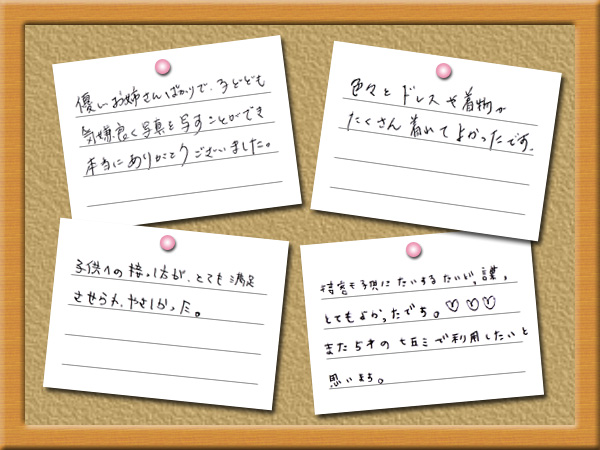 優しいお姉さんばかりで、子どもも
気嫌良く写真を写すことができ
本当にありがとうございました。
色々とドレスや着物が
たくさん着れてよかったです。
子供への接し方が、とても満足
させられ、やさしかった。
接客も子供にたいするたいど、
とてもよかったでち。♡♡♡
また5才の七五三で利用したいと
思いまち。